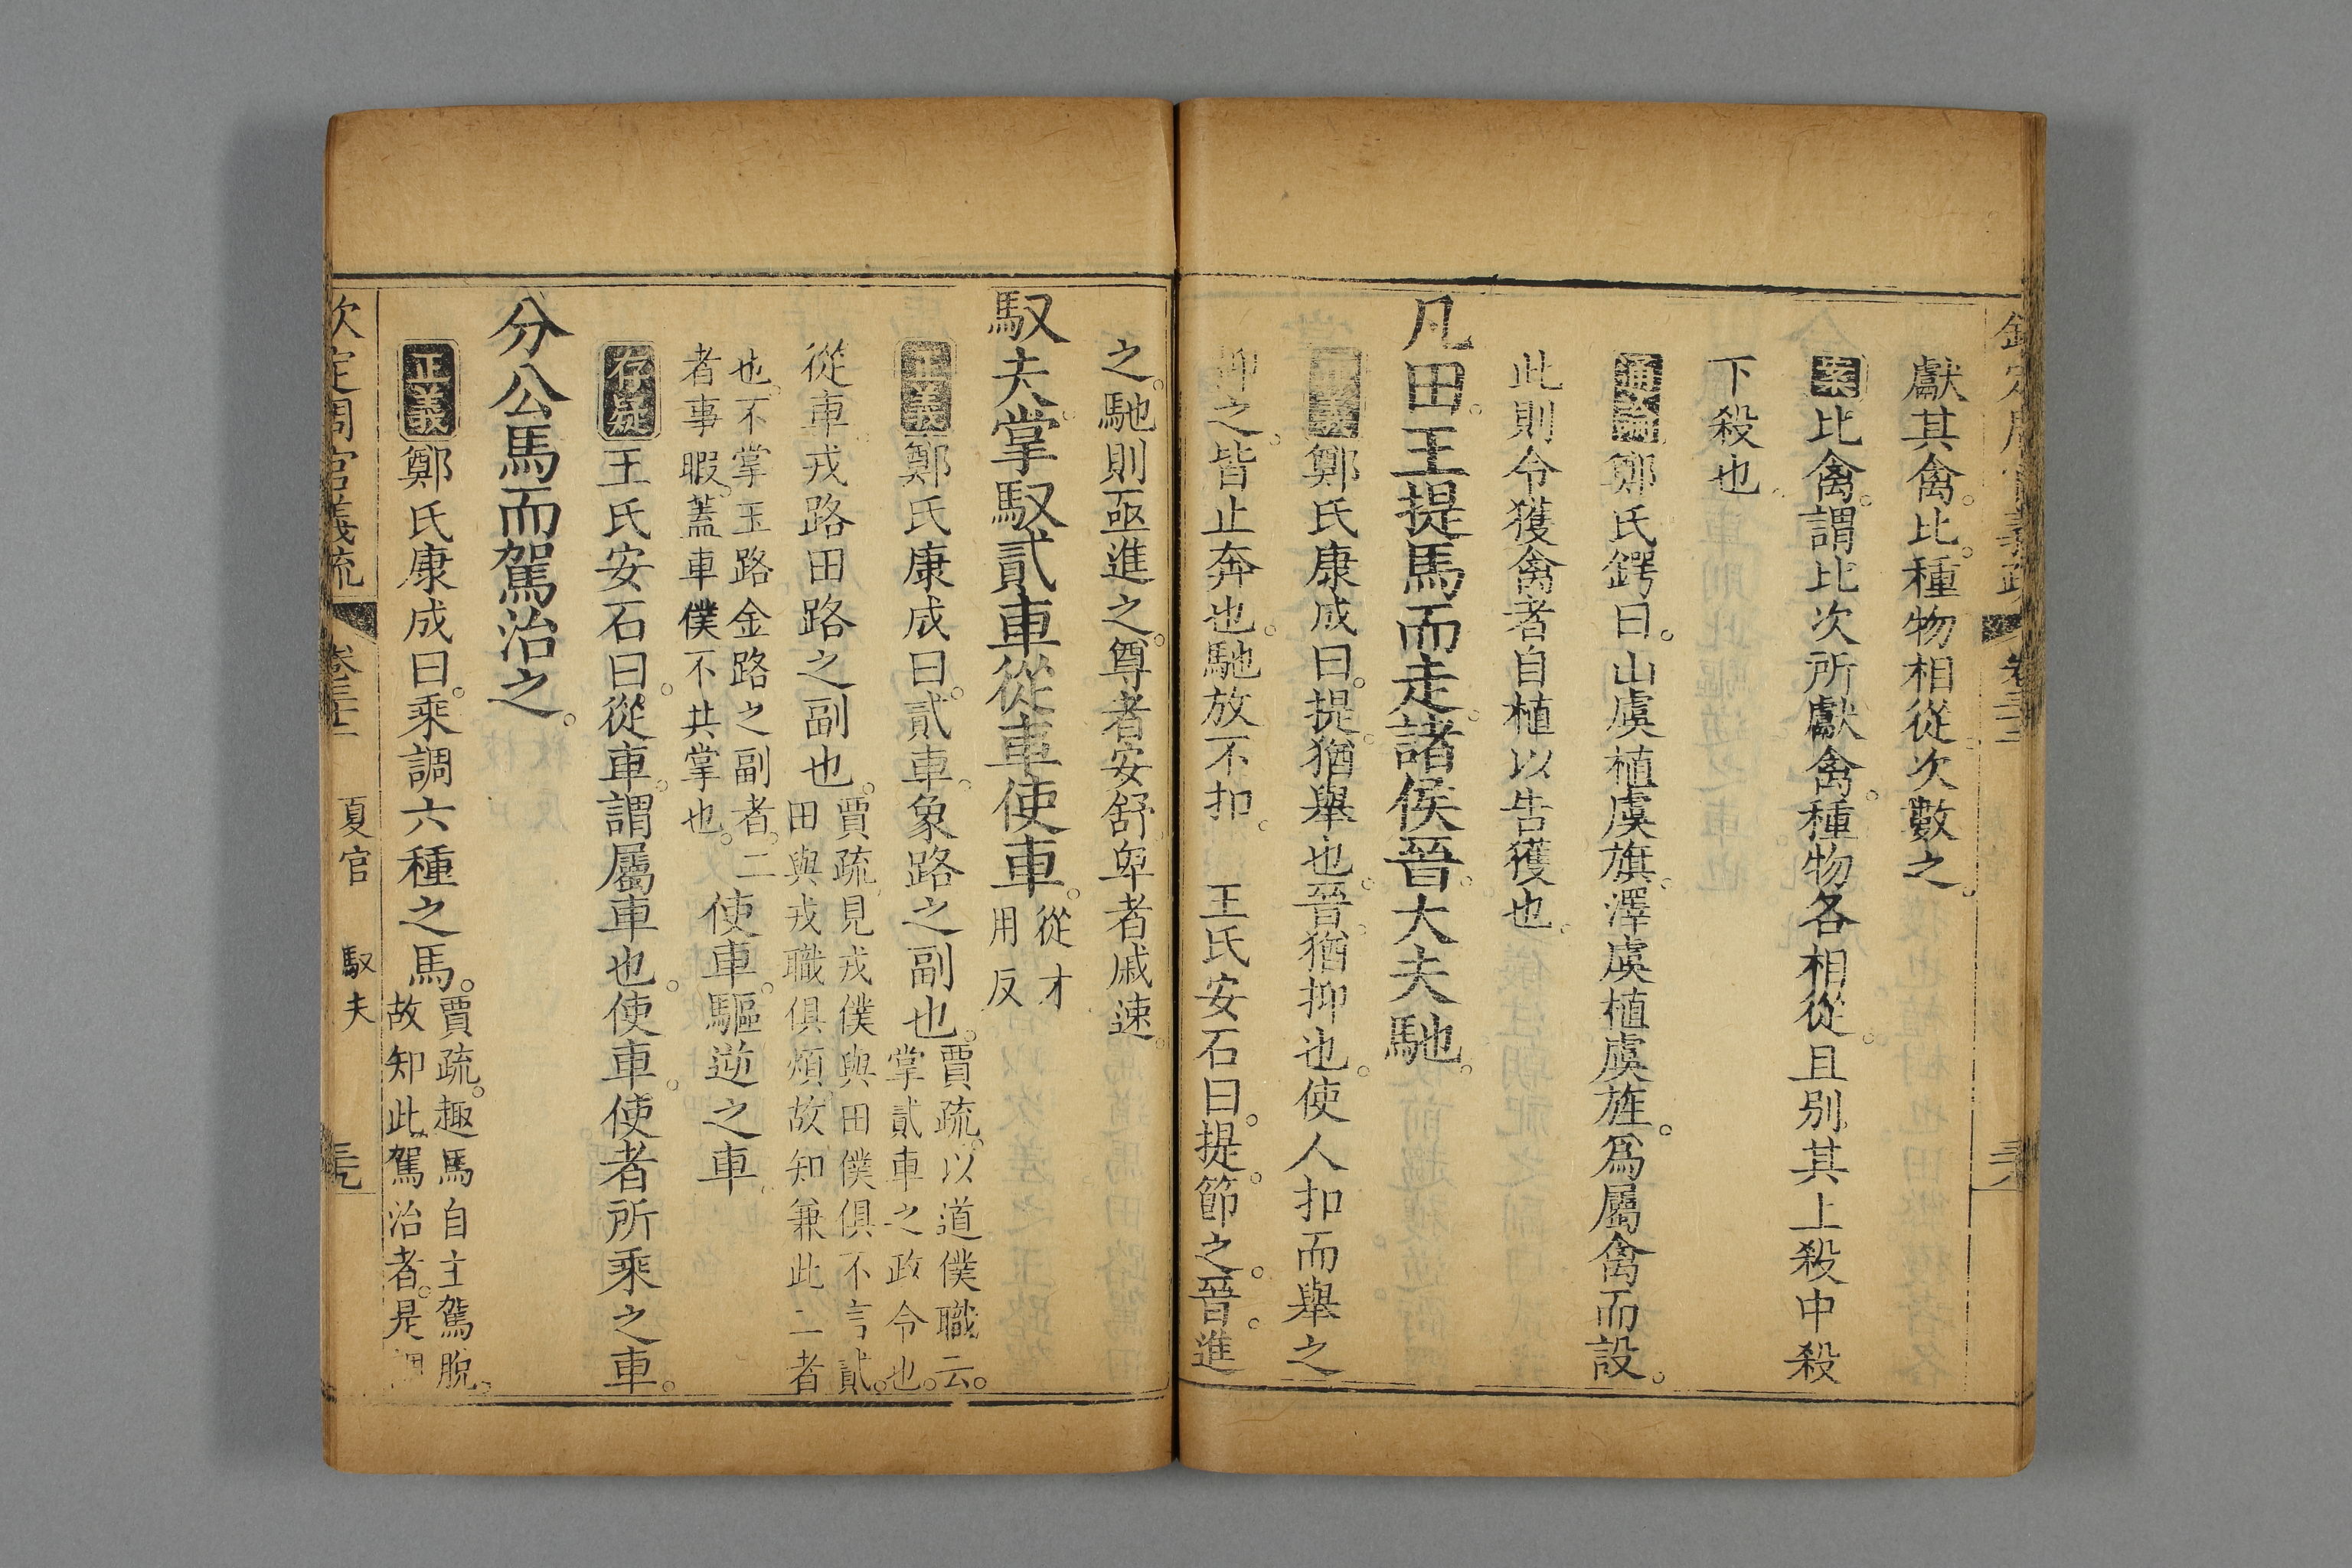 欽定周官義疏 卷三十二 三八
獻其禽。比。種物相從次數之。
案比禽。謂比次所獻禽。種物各相從。且別其上殺中殺
下殺也。
通論鄭氏鍔曰。山虞植虞旗。澤虞植虞旌。爲屬禽而設。
此則令獲禽者自植以告獲也。
凡田。王提馬而走。諸侯晉。大夫馳。
正義鄭氏康成曰。提猶舉也。晉。猶抑也。使人扣而舉之
抑之。皆止奔也。馳放不扣。 王氏安石曰。提。節之。晉。進
之。馳則亟進之。尊者安舒。卑者戚速。
馭夫。掌馭貳車從車使車。從才用反
正義鄭氏康成曰。貳車。象路之副也。賈疏。以道僕職云。掌貳車之政令也。
從車戎路田路之副也。賈疏見戎僕與田僕俱不言貳。田與戎職俱煩故知兼此二者
也。不掌玉路金路之副者。二者事暇。蓋車僕不共掌也。使車。驅逆之車。
存疑王氏安石曰。從車。謂屬車也。使車。使者所乘之車。
分公馬而駕治之。
正義鄭氏康成曰。乘調六種之馬。賈疏。趣馬自主駕脫。故知此駕治者。是調
欽定周官義疏 卷三十二 夏官 馭夫 三九